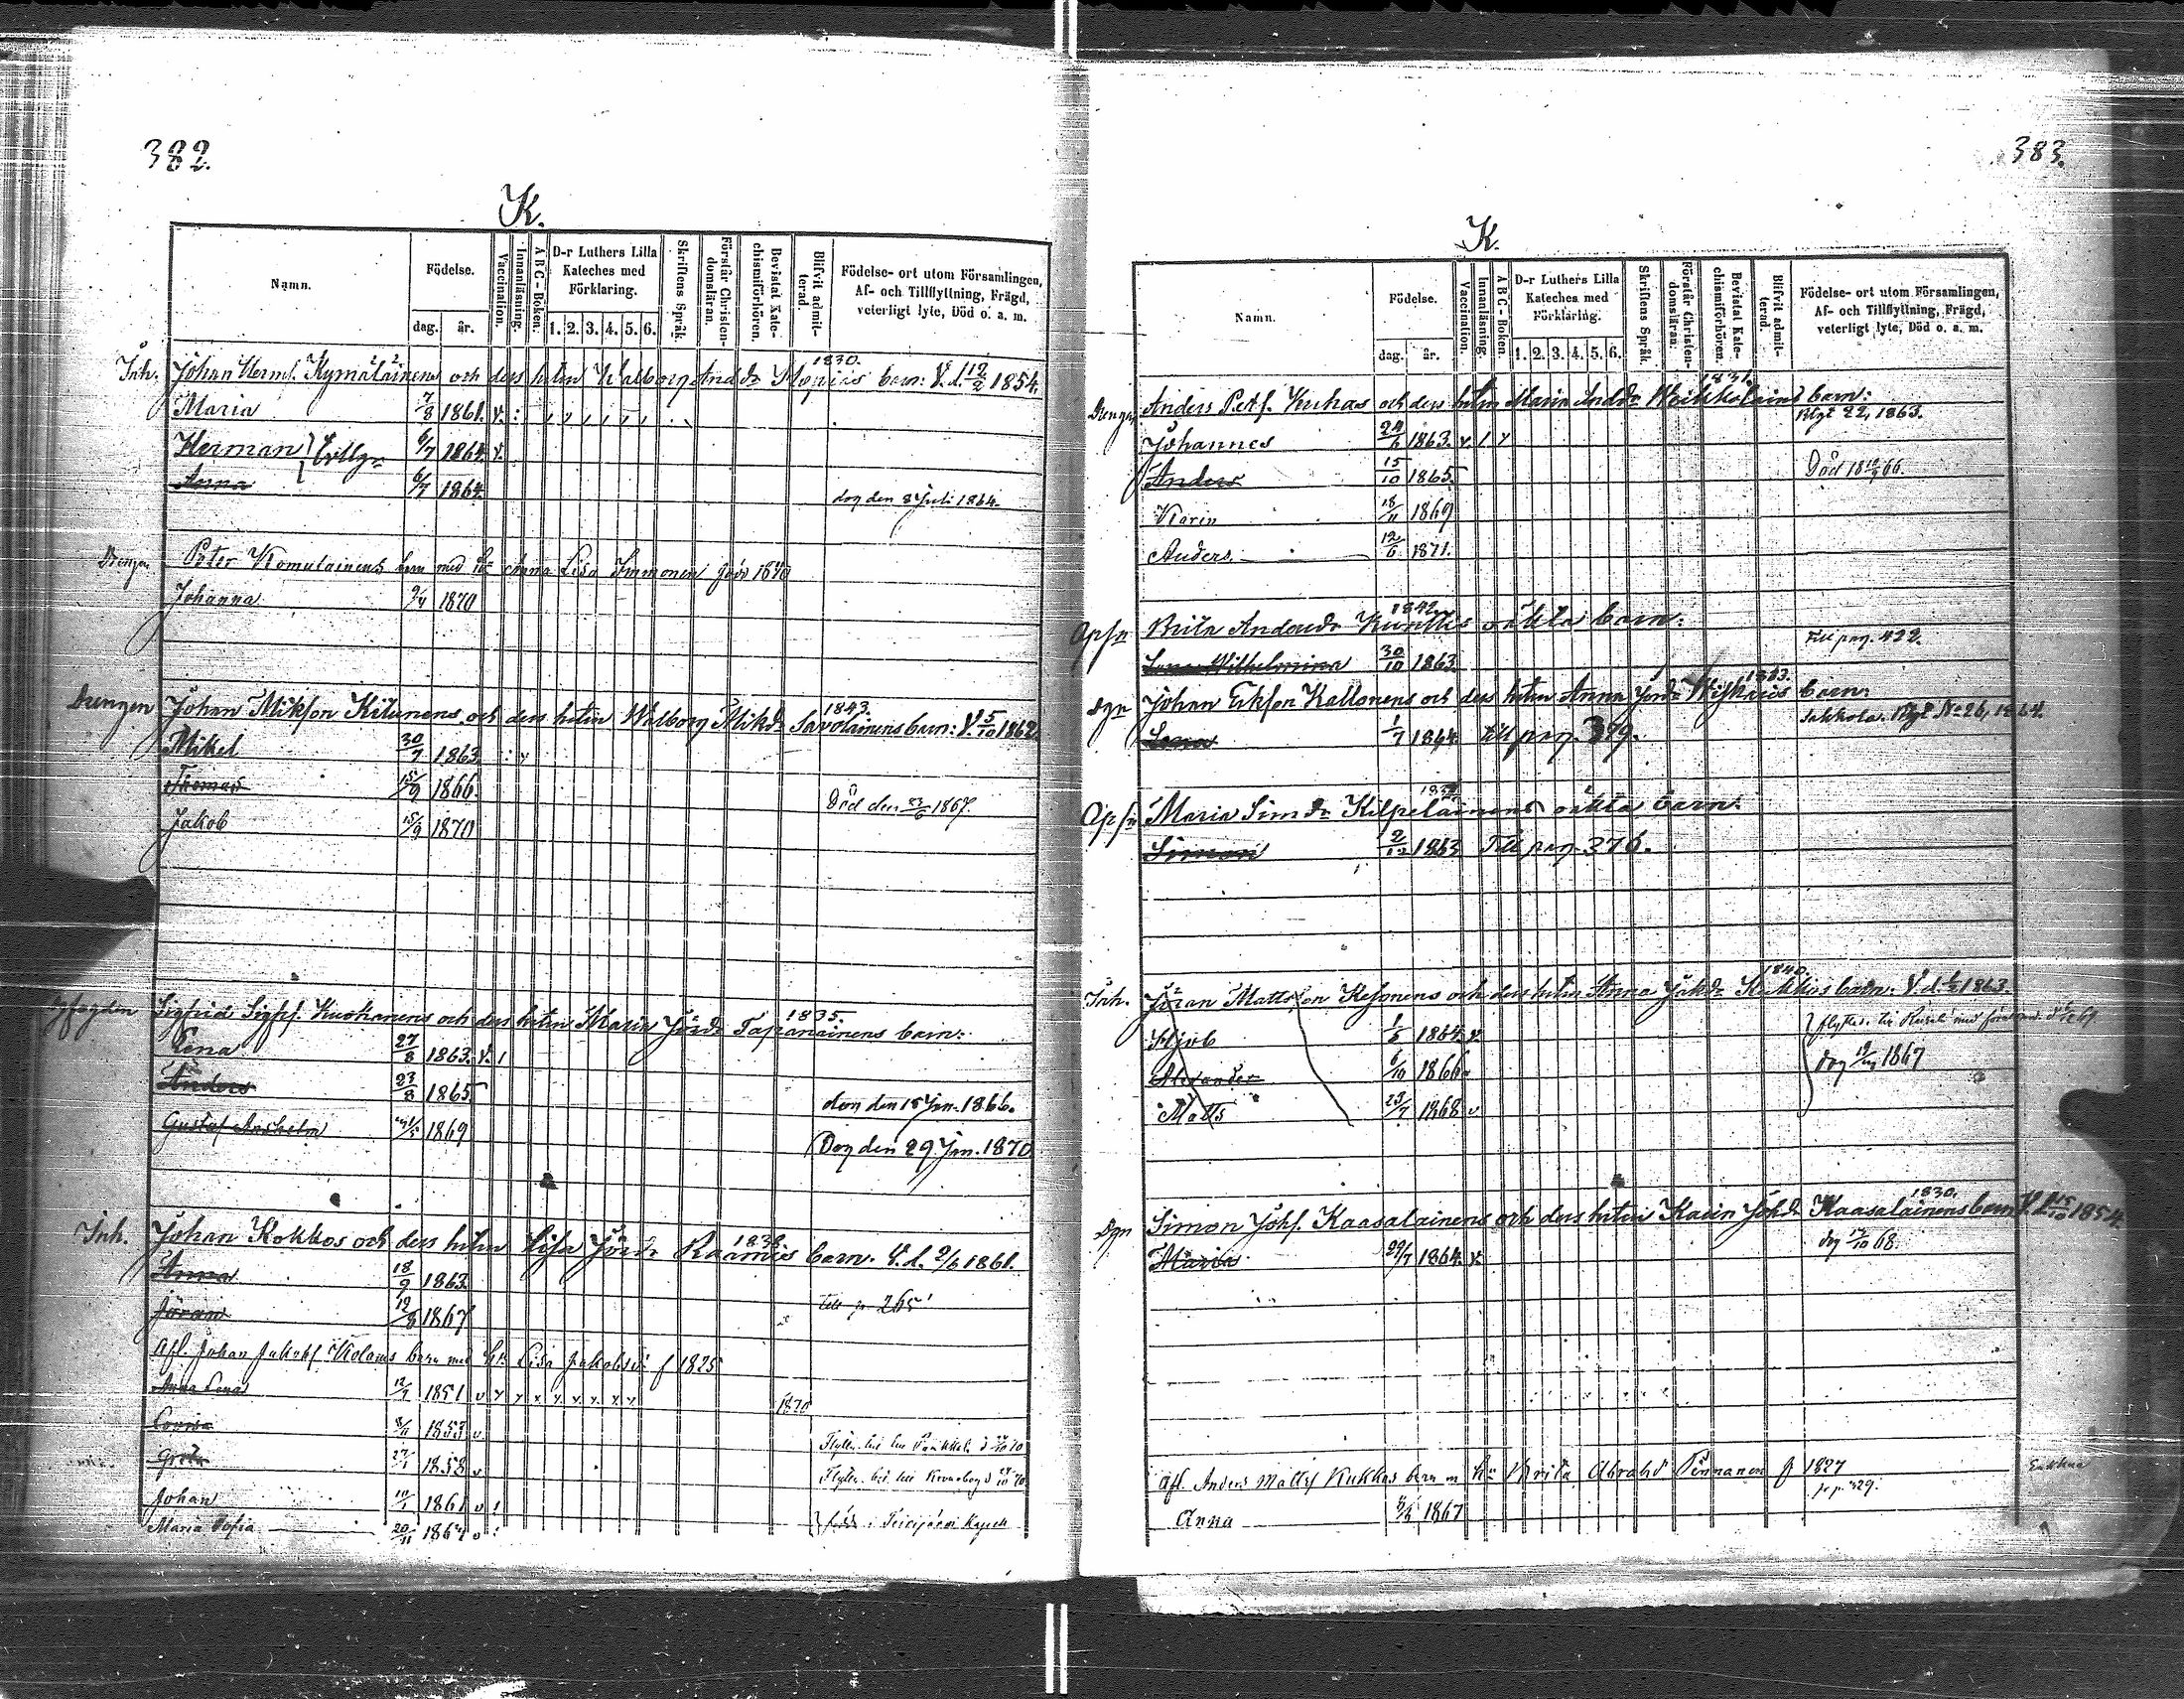 382.
K.
Namn.
Födelse.
dag. år.
Vaccination.
Innanläsning.
A B C - Boken.
D-r Luthers Lilla Kateches med Förklaring.
1. 2. 3. 4. 5. 6.
Skriftens Språk.
Förstår Christendomsläran.
Bevistat Katechismiförhören.
Blifvit admitterad.
Födelse- ort utom Församlingen, Af- och Tillflyttning, Frägd, veterligt lyte, Död o. a. m.
1830.
Inh. Johan Hermf. Kymäläinens och dess hstru Walborg And.dr Mönkis barn: V. d. 12/2 1854.
Maria 7/8 1861. v.
Herman } Tvillgr 6/7 1864. v.
Anna 6/7 1864. dog den 8 Juli 1864.
Drengen Peter Komulainens barn med h. Anna Lisa Immonen
Johanna 9/4 1870
1843.
Drengen Johan Mikson Kitunens och dess hstru Walborg Mikdr Savolainens barn: V. 5/10 1862.
Mikel 30/7 1863.
Thomas 15/9 1866. Död den 23/6 1867.
Jakob 15/9 1870
1835.
Sigfrid Sigff. Kuokanens och dess hstru Maria Jördr Tapanainens barn:
Lena 27/8 1863. v. 1
Anders 23/8 1865 dog den 15 Jan. 1866.
Gustaf Anshelm 1869 Dog den 29 Jan. 1870
1838.
Inh. Johan Kokkos och dess hstru Lisa Jördr Raamis barn. V. d. 2/6 1861.
Anna 18/9 1863.
Jöran 12/8 1867 till p 265
Afl. Johan Jakobf. Kolans barn med h. Lisa Jakobsd. f 1825
Anna Lena 12/7 1851 v 1870
8/11 1853 v
Greta 27/1 1858 v
Johan 1861 v
Maria Sofia 20/11 1864 v
383.
K.
Namn.
Födelse.
dag. år.
Vaccination.
Innanläsning.
A B C - Boken.
D-r Luthers Lilla Kateches med Förklaring.
1. 2. 3. 4. 5. 6.
Skriftens Språk.
Förstår Christendomsläran.
Bevistat Katechismiförhören.
Blifvit admitterad.
Födelse- ort utom Församlingen, Af- och Tillflyttning, Frägd, veterligt lyte, Död o. a. m.
1831.
Drengen Anders Petf. Kuhas och dess hstru Maria Anddr Weikkolains barn:
Johannes 24/6 1863. v. 22, 1863.
Anders 15/10 1865. Död 66.
Karin 18/11 1869
Anders 12/6 1871.
1842.
Brita Andersdr oäkta barn:
Lena Wilhelmina 30/10 1863 Till pag. 422.
1833.
Dgn Johan Erkson Kallonens och dess hstru Anna Jördr barn:
Lena 1/7 1864. till pag. 379. Sakkola. No 26, 1864.
Maria Simdr Kilpeläinens oäkta barn:
Simon 2/12 1863 Till pag. 376.
1840.
Inh. Jöran Mattsson Kesonens och dess hstru Anna Jakdr barn: V. d. 1863.
Hjob 1/5 1864. v.
Alexander 6/10 1866 dog 1867
Matts 23/7 1868 v
1830.
Dgn Simon Johf. Kaasalainens och dess hstru Karin Johdr Kaasalainens barn V. d. 15/10 1854.
Maria 29/7 1864. v. dog 68.
Afl. Anders Mattsf Kukkos barn m h. Brita Abrahd Pennanen f 1827
Anna 1867